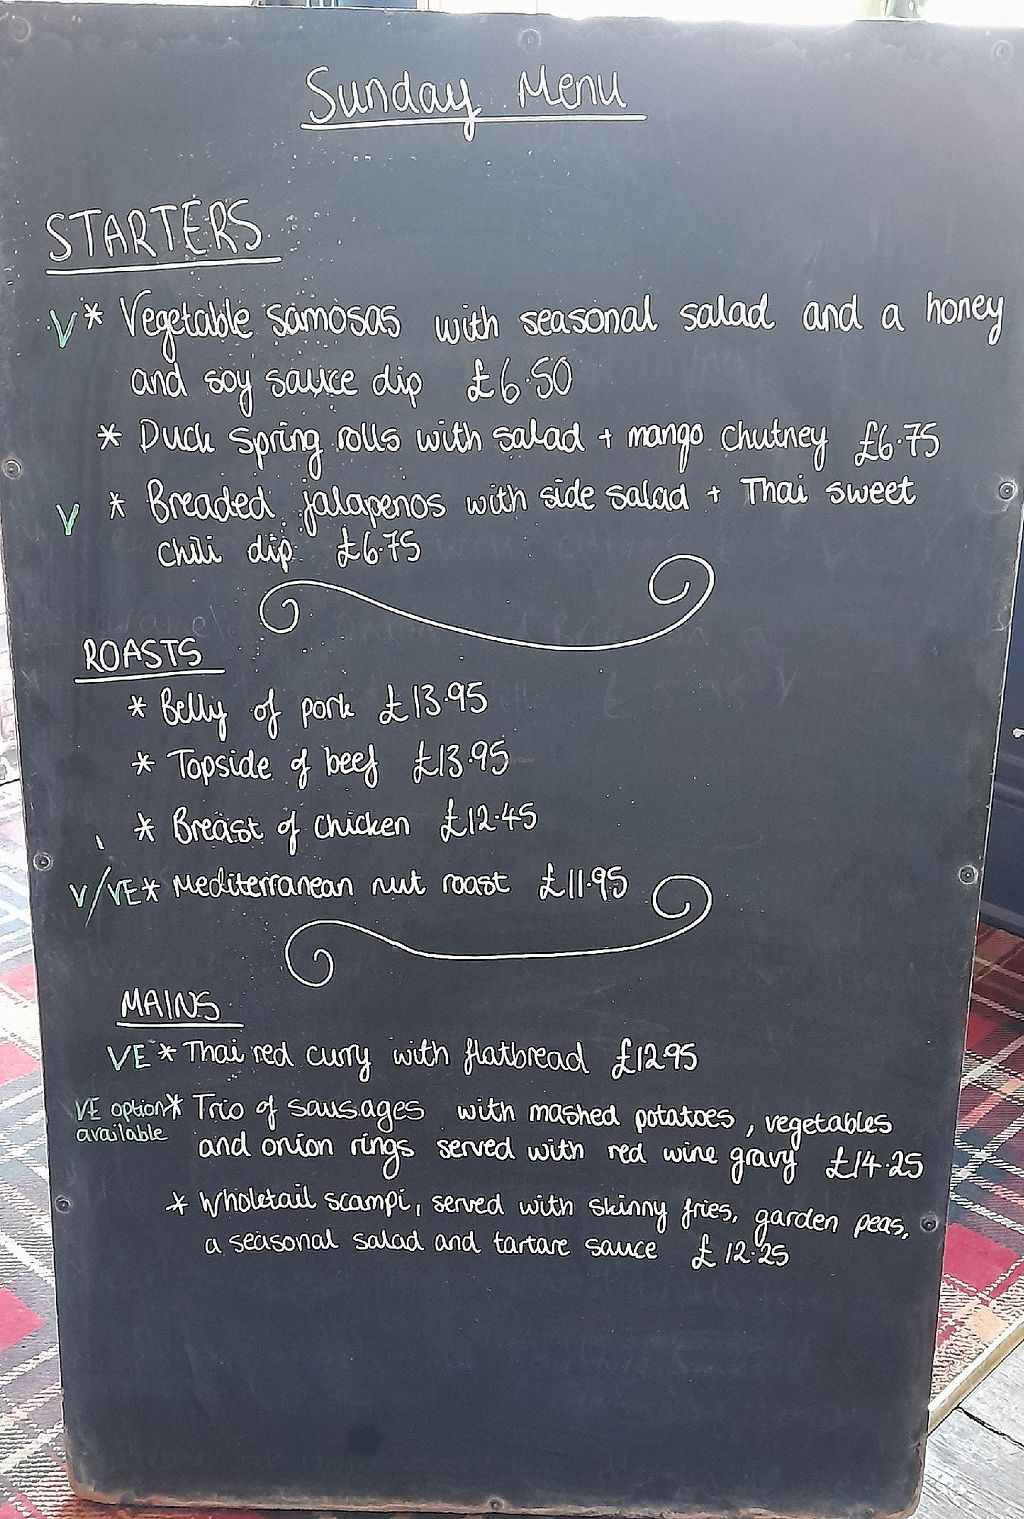 Sunday Menu
STARTERS
V * Vegetable samosas with seasonal salad and a honey
and soy sauce dip £6.50
* Duck Spring rolls with salad + mango chutney £6.75
V * Breaded jalapenos with side salad + Thai sweet
chili dip £6.75
ROASTS
* Belly of pork £13.95
* Topside of beef £13.95
* Breast of chicken £12.45
V/VE * Mediterranean nut roast £11.95
MAINS
VE * Thai red curry with flatbread £12.95
VE option * Trio of sausages with mashed potatoes, vegetables
available and onion rings served with red wine gravy £14.25
* Wholetail scampi, served with skinny fries, garden peas,
a seasonal salad and tartare sauce £12.25